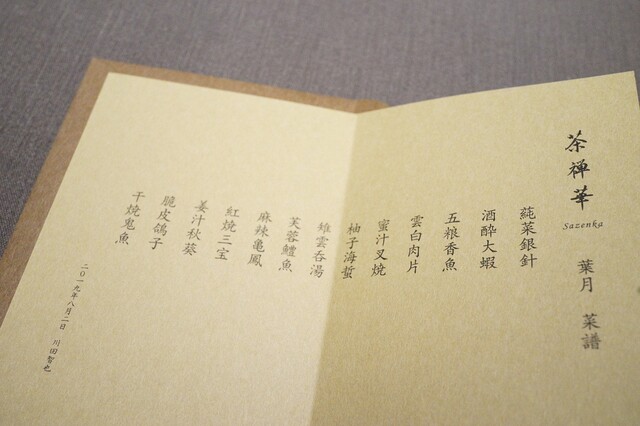 茶禅華
Sazenka
葉月 菜譜
蒓菜銀針
酒酔大蝦
五粮香魚
雲白肉片
蜜汁叉焼
柚子海蜇
雉雲呑湯
芙蓉鱧魚
麻辣亀鳳
紅焼三宝
姜汁秋葵
脆皮鴿子
干焼鬼魚
二〇一九年八月二日 川田智也